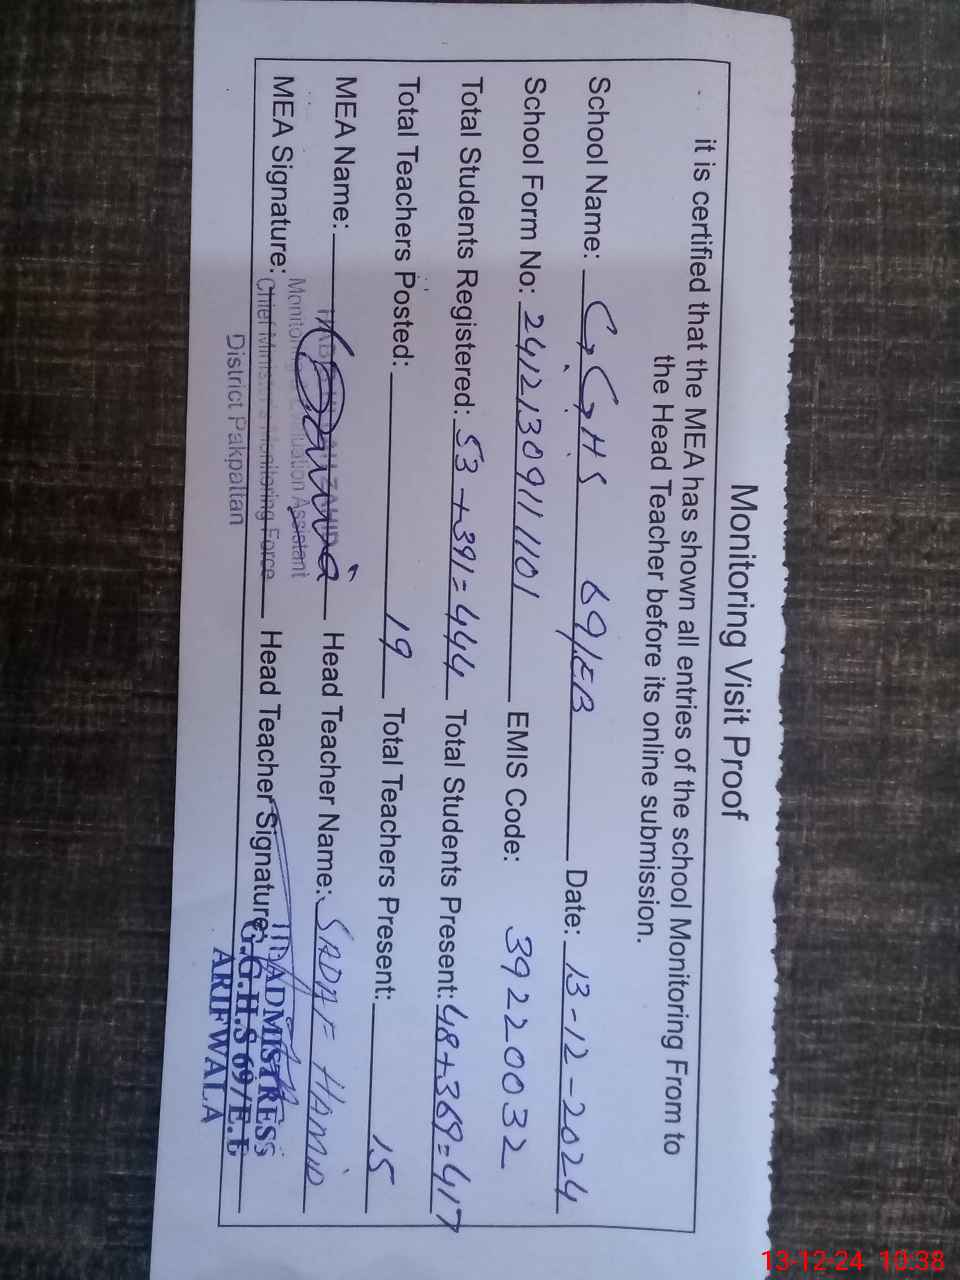 Monitoring Visit Proof
it is certified that the MEA has shown all entries of the school Monitoring From to
the Head Teacher before its online submission.
School Name: G.G.H.S 69/EB Date: 13-12-2024
School Form No: 24121309111101 EMIS Code: 39220032
Total Students Registered: 53+391=444 Total Students Present: 48+369=417
Total Teachers Posted: 19 Total Teachers Present: 15
MEA Name: Head Teacher Name: SADAF HAMID
Monitoring Evaluation Assistant
MEA Signature: Chief Minister's Monitoring Force Head Teacher Signature:
District Pakpattan
HEADMISTRESS
G.G.H.S 69/E.B
ARIFWALA
13-12-24 10:38